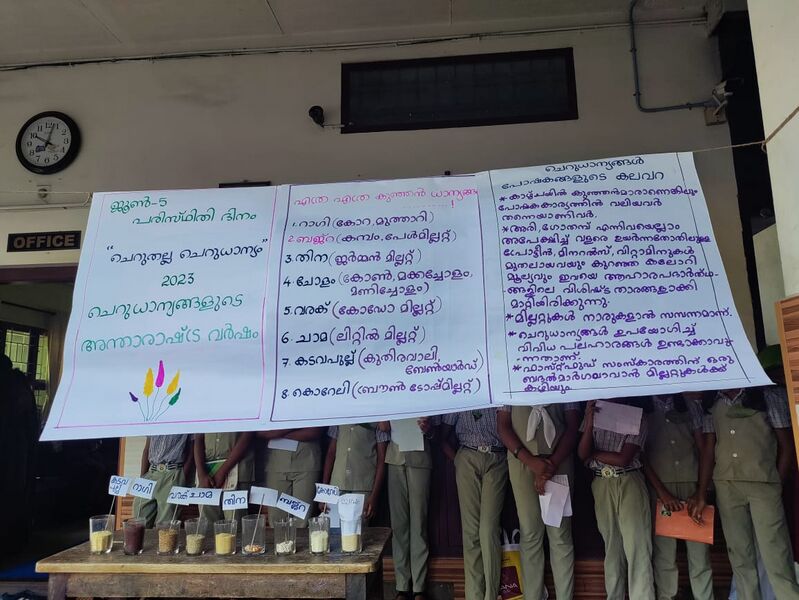 ജൂൺ-5
പരിസ്ഥിതി ദിനം
"ചെറുതല്ല ചെറുധാന്യം"
2023
ചെറുധാന്യങ്ങളുടെ
അന്താരാഷ്ട്ര വർഷം
എത്ര എത്ര കുഞ്ഞൻ ധാന്യങ്ങൾ
!
1. റാഗി (കോറ, മുത്താറി)
2. ബജ്റ (കമ്പം, പേൾമില്ലറ്റ്)
3. തിന (ജർമ്മൻ മില്ലറ്റ്)
4. ചോളം (കോൺ, മക്കച്ചോളം,
മണിച്ചോളം)
5. വരക് (കോഡോ മില്ലറ്റ്)
6. ചാമ (ലിറ്റിൽ മില്ലറ്റ്)
7. കടവപുല്ല് (കുതിരവാലി,
ബേൺയാർഡ്)
8. കൊറേലി (ബ്രൗൺ ടോപ്മില്ലറ്റ്)
ചെറുധാന്യങ്ങൾ
പോഷകങ്ങളുടെ കലവറ
*കാഴ്ചയിൽ കുഞ്ഞൻമാരാണെങ്കിലും
പോഷകകാര്യത്തിൽ വലിയവർ
തന്നെയാണിവർ.
*അരി, ഗോതമ്പ് എന്നിവയെല്ലാം
അപേക്ഷിച്ച് വളരെ ഉയർന്നതോതിലുള്ള
പ്രോട്ടീൻ, മിനറൽസ്, വിറ്റാമിനുകൾ
മുതലായവയും കുറഞ്ഞ കലോറി
മൂല്യവും ഇവയെ ആഹാരപദാർത്ഥ-
ങ്ങളിലെ വിശിഷ്ട താരങ്ങളാക്കി
മാറ്റിയിരിക്കുന്നു.
*മില്ലറ്റുകൾ നാരുകളാൽ സമ്പന്നമാണ്.
*ചെറുധാന്യങ്ങൾ ഉപയോഗിച്ച്
വിവിധ പലഹാരങ്ങൾ ഉണ്ടാക്കാവു
-ന്നതാണ്.
*ഫാസ്റ്റ്ഫുഡ് സംസ്കാരത്തിന് ഒരു
ബദൽമാർഗമാവാൻ മില്ലറ്റുകൾക്ക്
കഴിയും.
OFFICE
കടവ
പുല്ല്
റാഗി
വരക്
ചാമ
തിന
ബജ്റ